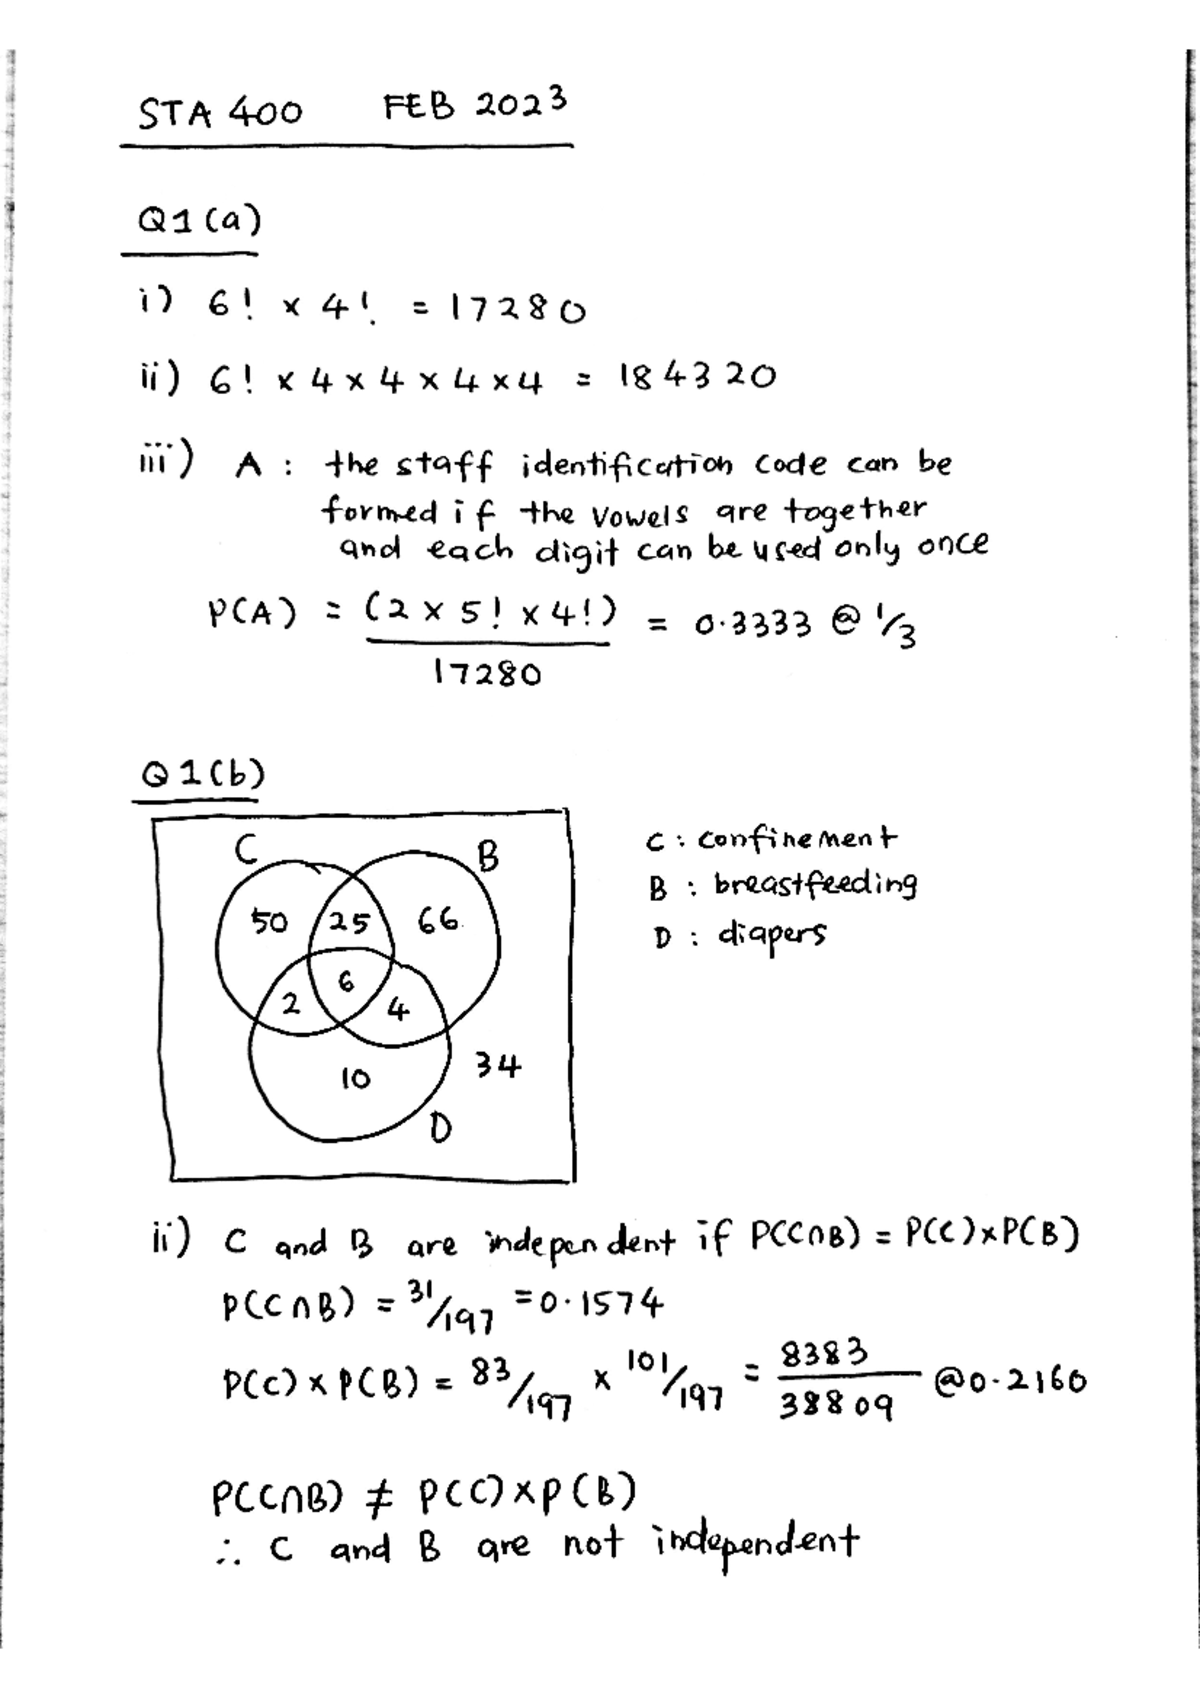 STA 400 FEB 2023
Q1(a)
i) 6! × 4! = 17280
ii) 6! × 4 × 4 × 4 × 4 = 184320
iii) A : the staff identification code can be
formed if the vowels are together
and each digit can be used only once
P(A) = (2 × 5! × 4!) / 17280 = 0.3333 @ 1/3
Q1(b)
C B
50 25 66
2 6 4
10 34
D
C : confinement
B : breastfeeding
D : diapers
ii) C and B are independent if P(C∩B) = P(C)×P(B)
P(C∩B) = 31/197 = 0.1574
P(C) × P(B) = 83/197 × 101/197 = 8383/38809 @0.2160
P(C∩B) ≠ P(C)×P(B)
∴ C and B are not independent